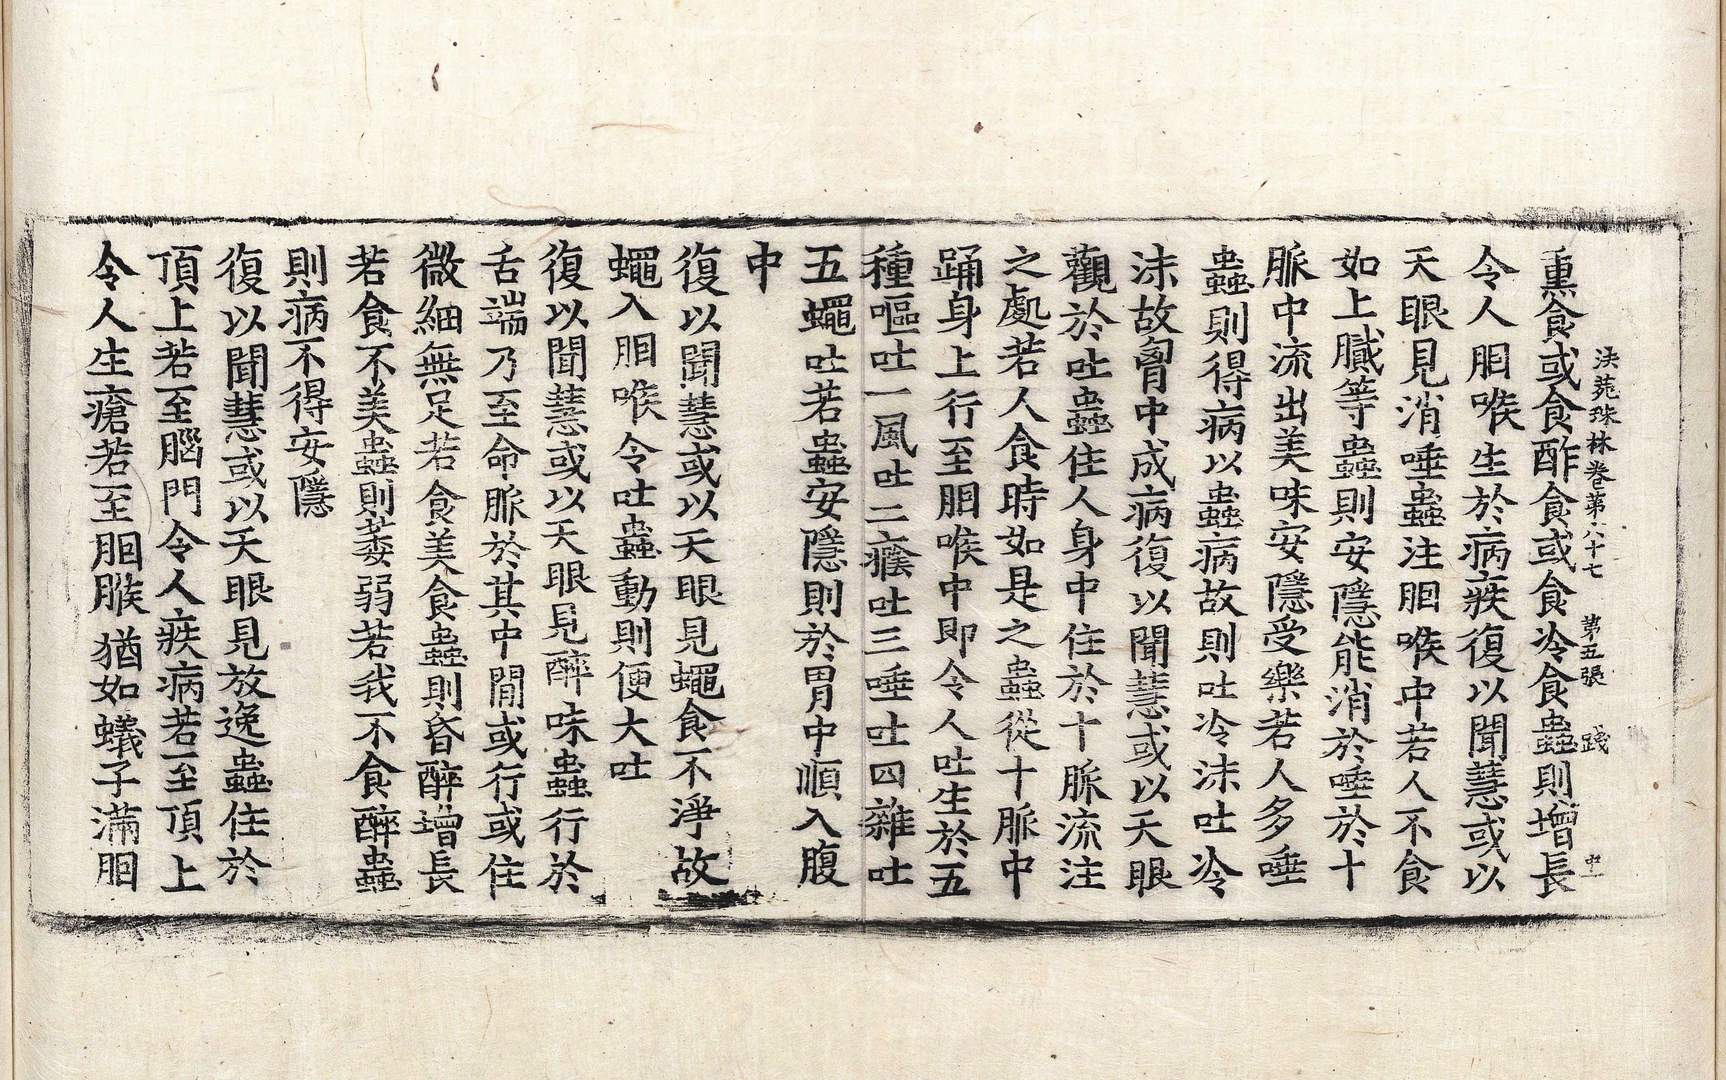 法苑珠林卷第六十七　第五張　踐
熏食或食酢食或食冷食蟲則增長
令人䏚喉生於病疾復以聞慧或以
天眼見消唾蟲注䏚喉中若人不食
如上膩等蟲則安隱能消於唾於十
脈中流出美味安隱受樂若人多唾
蟲則得病以蟲病故則吐冷沫吐冷
沫故胷中成病復以聞慧或以天眼
觀於吐蟲住人身中住於十脈流注
之處若人食時如是之蟲從十脈中
踊身上行至䏚喉中即令人吐生於五
種嘔吐一風吐二癊吐三唾吐四雜吐
五蠅吐若蟲安隱則於胃中順入腹
中
復以聞慧或以天眼見蠅食不淨故
蠅入䏚喉令吐蟲動則便大吐
復以聞慧或以天眼見醉味蟲行於
舌端乃至命脈於其中間或行或住
微細無足若食美食蟲則昏醉增長
若食不美蟲則萎弱若我不食醉蟲
則病不得安隱
復以聞慧或以天眼見放逸蟲住於
頂上若至腦門令人疾病若至頂上
令人生瘡若至䏚喉猶如蟻子滿䏚